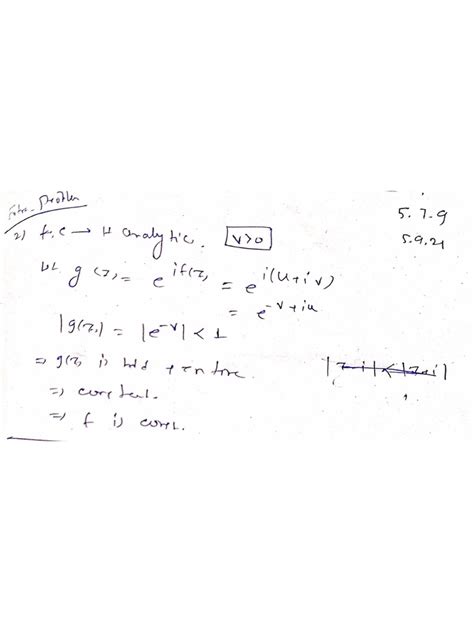 Extra Problem
5.7.9
2) f: C → H analytic. v>0
5.9.21
let g(z) = e^{if(z)} = e^{i(u+iv)}
= e^{-v+iu}
|g(z)| = |e^{-v}| < 1
⇒ g(z) is bdd + entire
⇒ constant.
⇒ f is const.